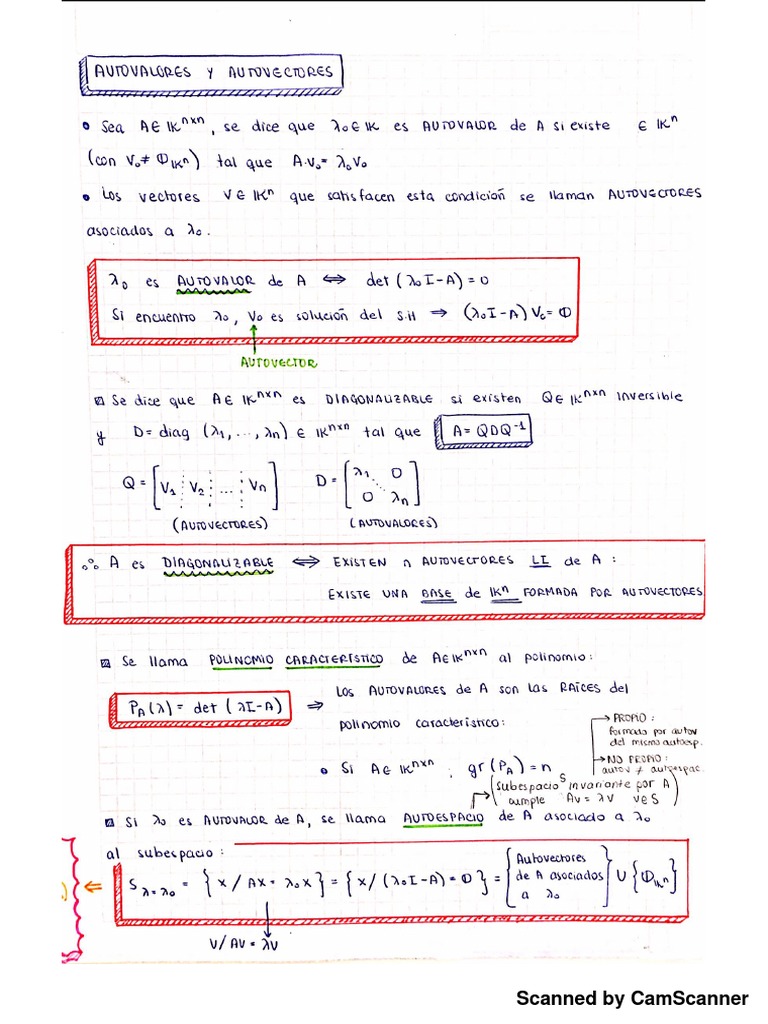 AUTOVALORES Y AUTOVECTORES
• Sea A∈ IKⁿˣⁿ, se dice que λ₀∈ IK es AUTOVALOR de A si existe ∈ IKⁿ
(con V₀≠ Φ_IKⁿ) tal que A·V₀= λ₀V₀
• Los vectores V∈ IKⁿ que satisfacen esta condición se llaman AUTOVECTORES
asociados a λ₀.
λ₀ es AUTOVALOR de A ⟺ det (λ₀I-A) = 0
Si encuentro λ₀, V₀ es solución del S.H ⇒ (λ₀I-A) V₀= Φ
AUTOVECTOR
Se dice que A∈ IKⁿˣⁿ es DIAGONALIZABLE si existen Q∈ IKⁿˣⁿ inversible
y D= diag (λ₁, ..., λn) ∈ IKⁿˣⁿ tal que A= QDQ⁻¹
Q = [V₁ ⋮ V₂ ⋮ ... ⋮ Vn] D = [λ₁ 0 ⋱ 0 λn]
(AUTOVECTORES) (AUTOVALORES)
∴ A es DIAGONALIZABLE ⟺ EXISTEN n AUTOVECTORES LI de A :
EXISTE UNA BASE de IKⁿ FORMADA POR AUTOVECTORES
Se llama POLINOMIO CARACTERÍSTICO de A∈IKⁿˣⁿ al polinomio:
P_A(λ) = det (λI-A) ⇒ Los AUTOVALORES de A son las RAÍCES del
polinomio característico:
→ PROPIO :
formado por autov
del mismo autoesp.
• Si A∈ IKⁿˣⁿ : gr (P_A) = n
→ NO PROPIO :
autov ≠ autoespac.
(Subespacio S invariante por A
cumple Av = λv v∈S)
Si λ₀ es AUTOVALOR de A, se llama AUTOESPACIO de A asociado a λ₀
al subespacio :
S λ=λ₀ = {X / AX = λ₀X} = {X / (λ₀I-A) = Φ} = {Autovectores de A asociados a λ₀} ∪ {Φ_IKⁿ}
V/ AV = λV
Scanned by CamScanner